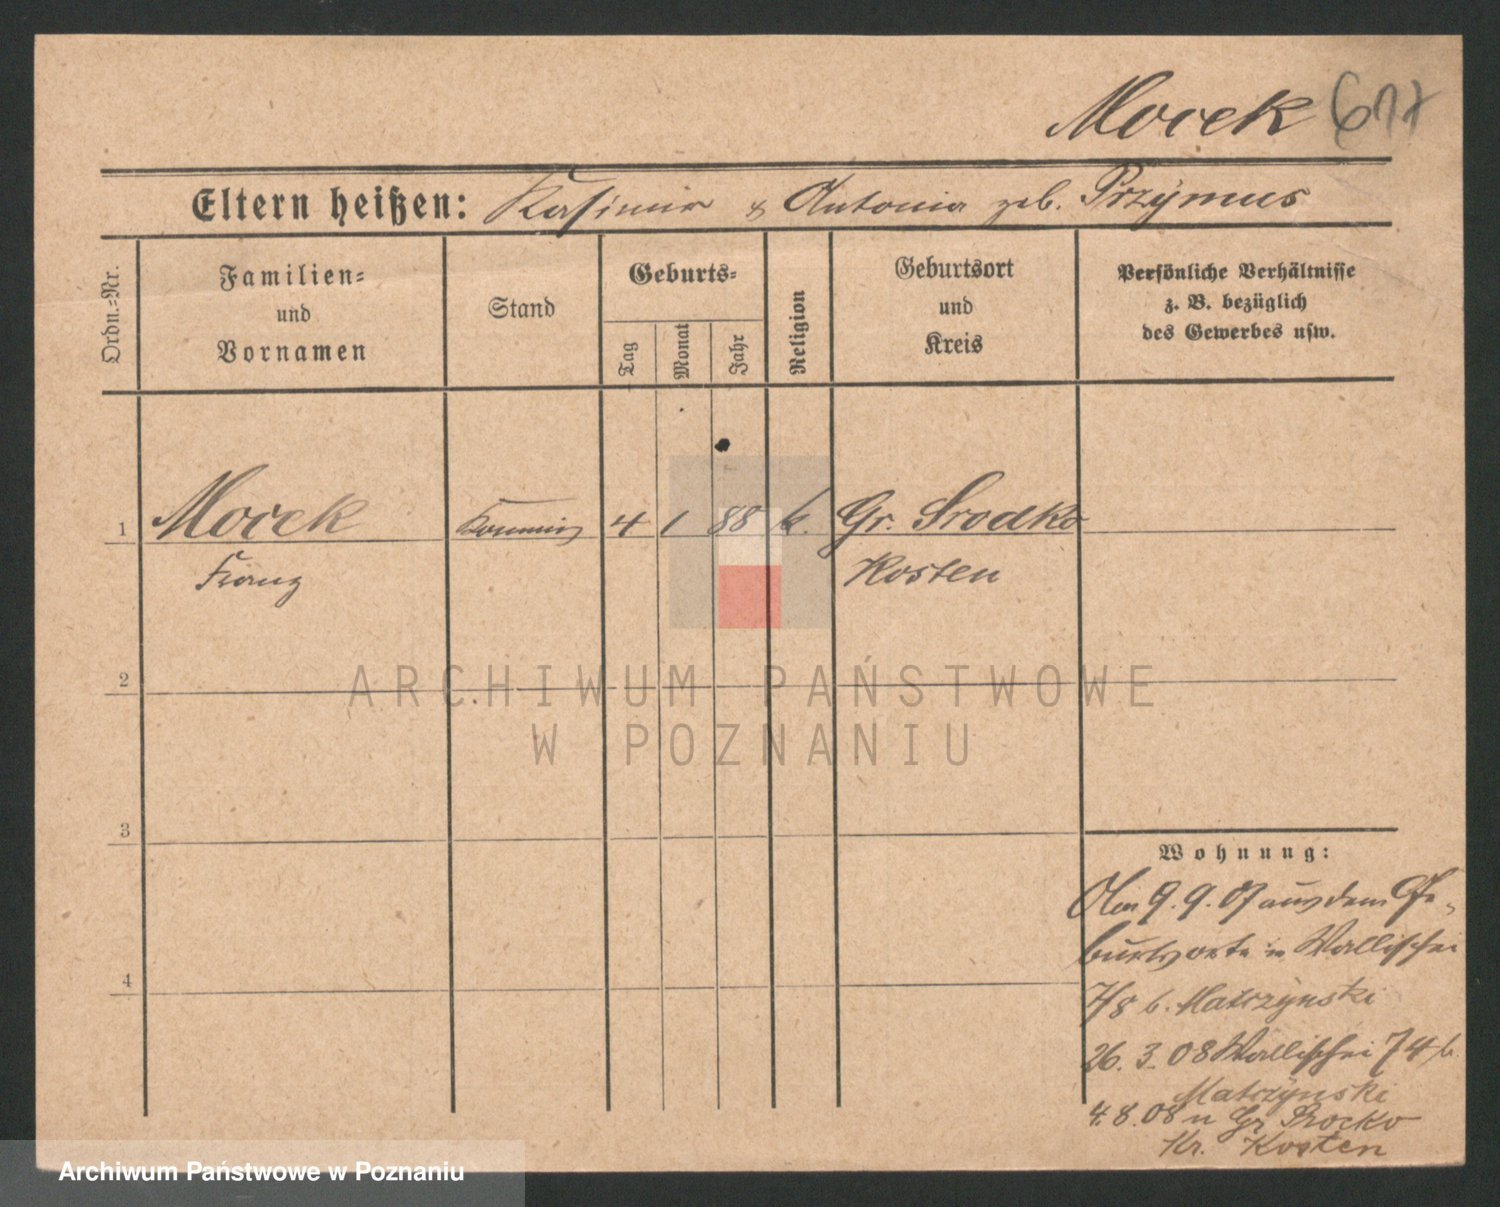 Mocek 617
Eltern heißen: Kasimir & Antonia geb. Przymus
Ordn.=Nr.
Familien=
und
Vornamen
Stand
Geburts=
Tag
Monat
Jahr
Religion
Geburtsort
und
Kreis
Persönliche Verhältnisse
z. B. bezüglich
des Gewerbes usw.
1 Mocek Kommis 4 1 88 k. Gr. Srodko
Franz Kosten
2
3
4
Wohnung:
Am 9. 9. 07 aus dem Ge-
burtsorte in Wallischei
7/8 b. Matczynski
26. 3. 08 Wallischei 74 b.
Matczynski
4. 8. 08 n Gr Srocko
Kr. Kosten
ARCHIWUM PAŃSTWOWE
W POZNANIU
Archiwum Państwowe w Poznaniu